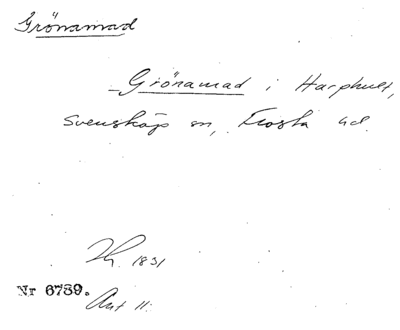 Grönamad
Grönamad i Harphult,
Svensköp sn, Frosta hd.
1831
Nr 6789.
Ant 11.